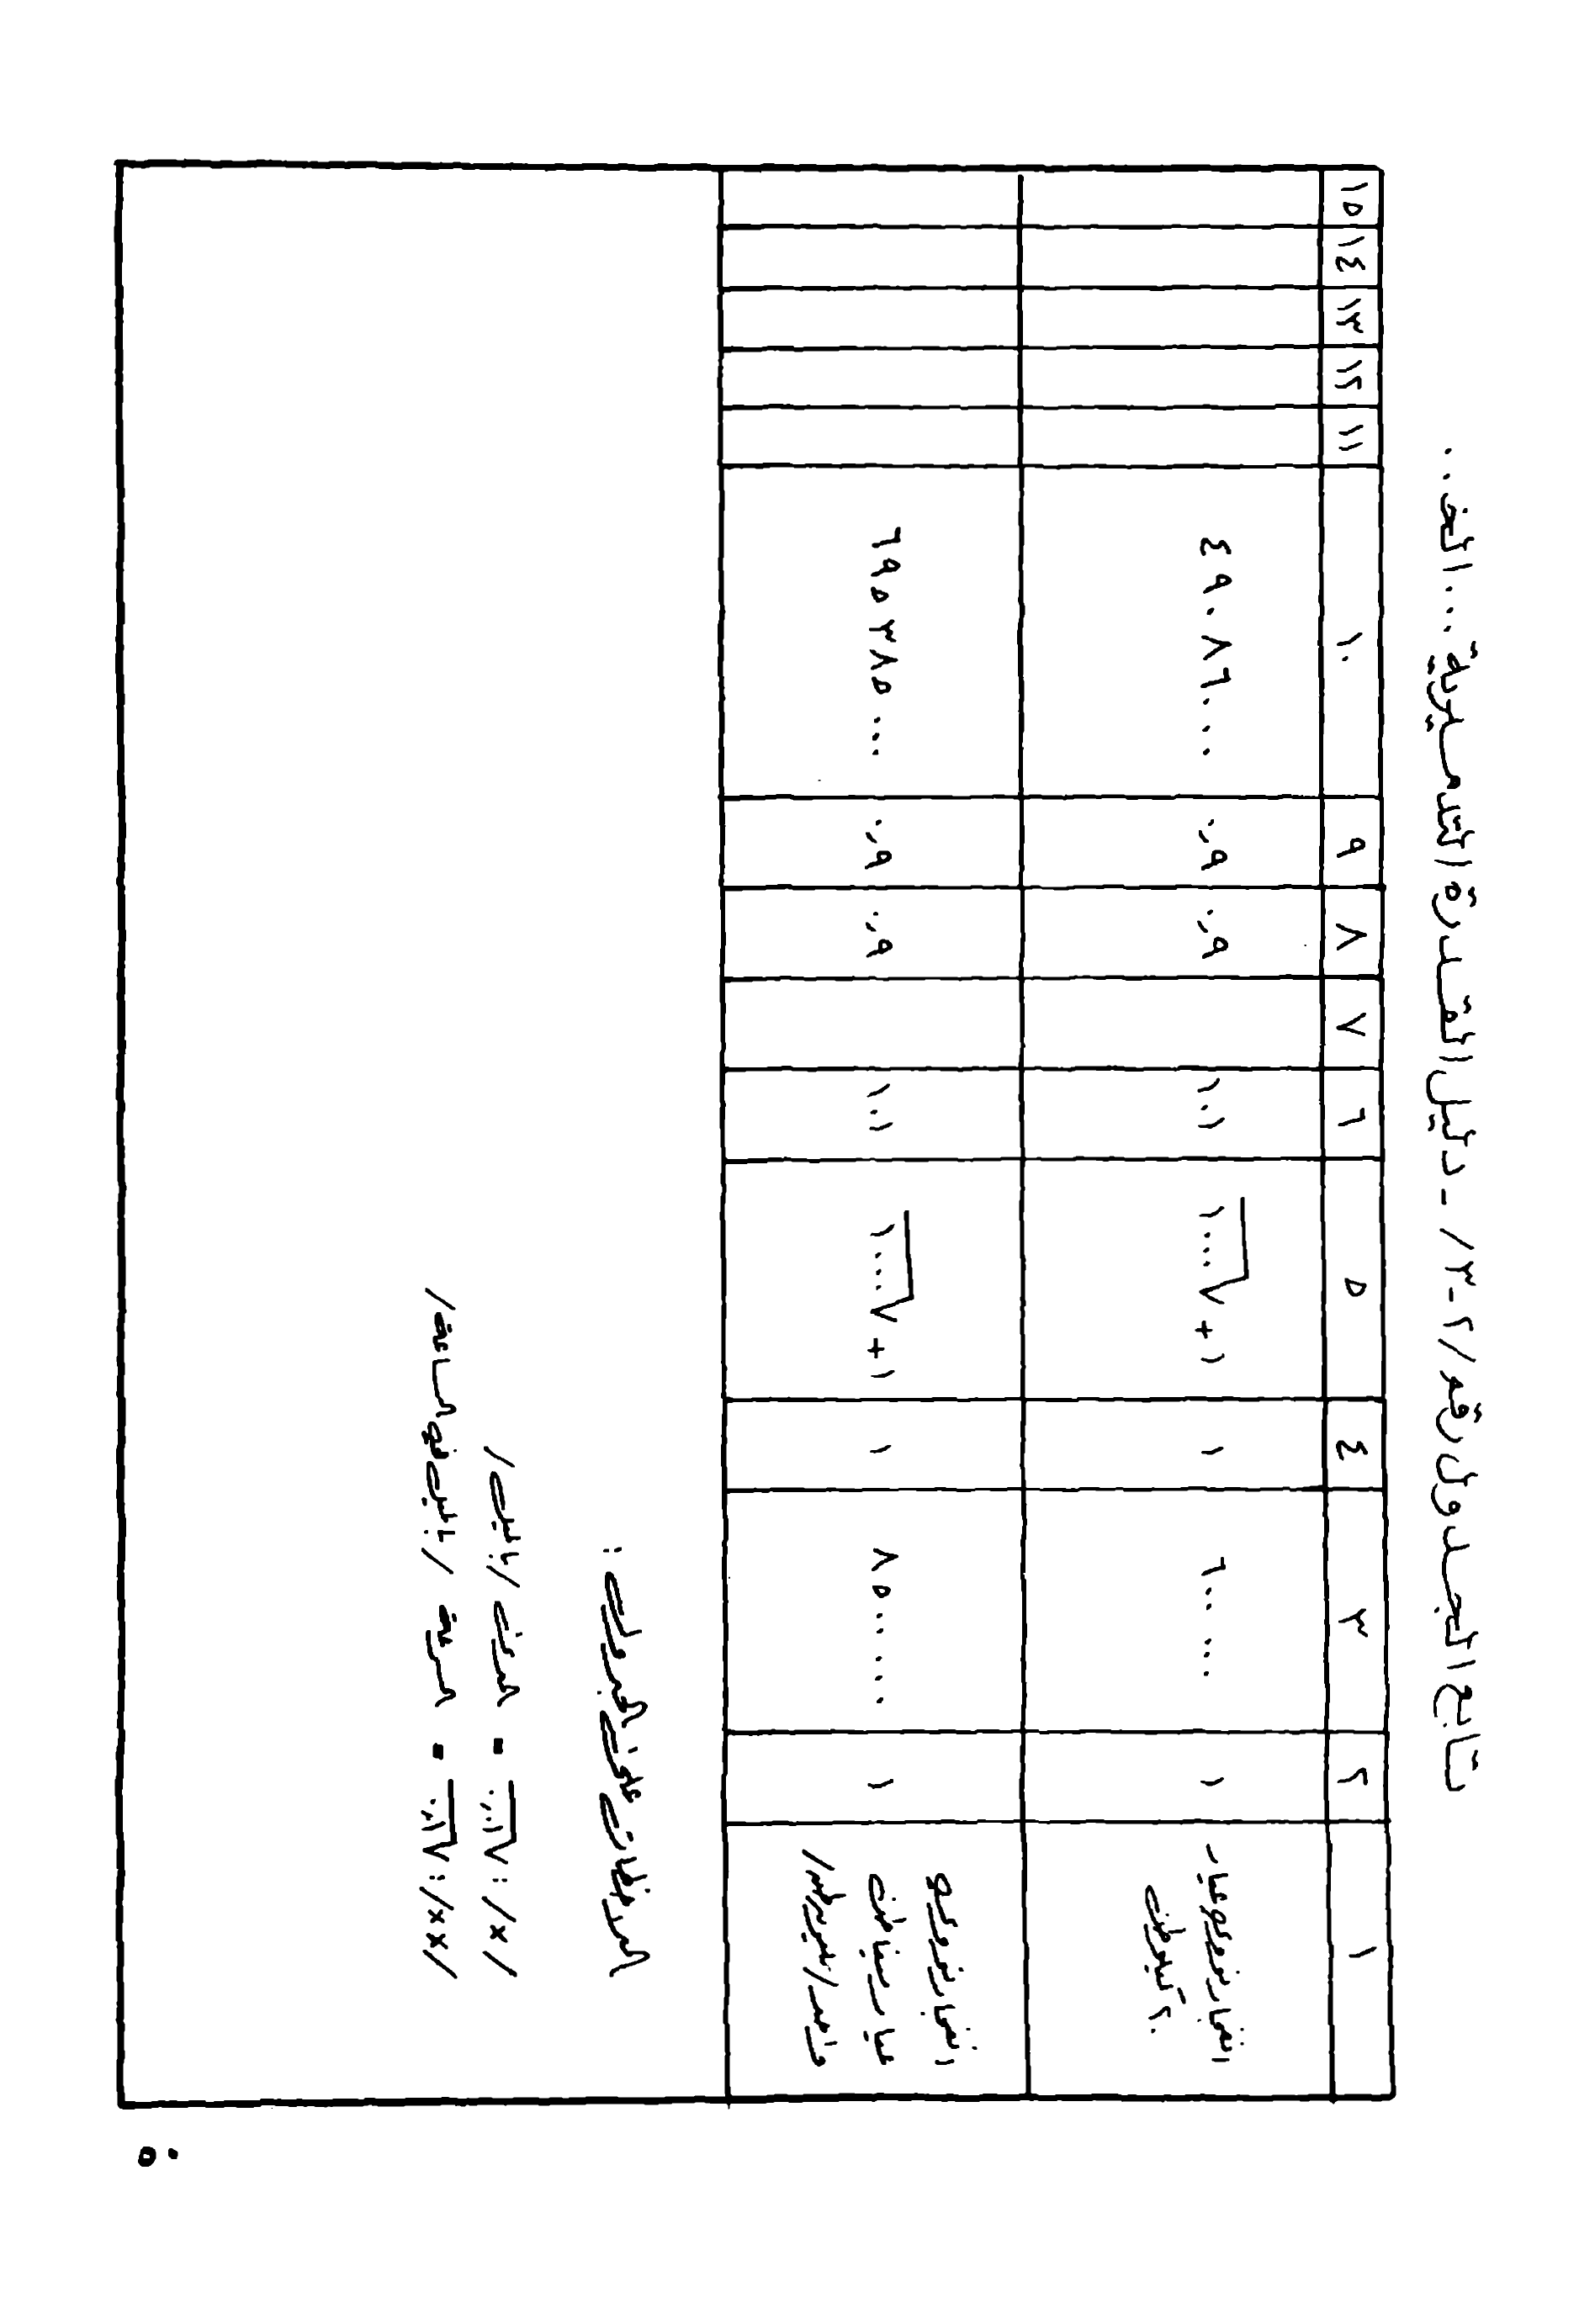 تابع الجدول رقم /٢-٣/ - دليل القدرة التدميرية ... الخ ..
١ ٢ ٣ ٤ ٥ ٦ ٧ ٨ ٩ ١٠ ١١ ١٢ ١٣ ١٤ ١٥
انفجار نووي عيار
٢٠ كيلوطن
١ ٦٠٠٠٠٠ ١ ١ + √١٠٠٠ ١٠١ ٠,٩ ٠,٩ ٤٩٠٨٦٠٠٠
انفجار نووي
عيار ميغاطن
واحد /
١ ٨٥٠٠٠٠٠ ١ ١ + √١٠٠٠٠ ١٠١ ٠,٩ ٠,٩ ٦٩٥٣٨٥٠٠٠
الملاحظات على الجدول :
/×/ : = العدد /
/××/ : = السرعة / في الساعة /
٥٠